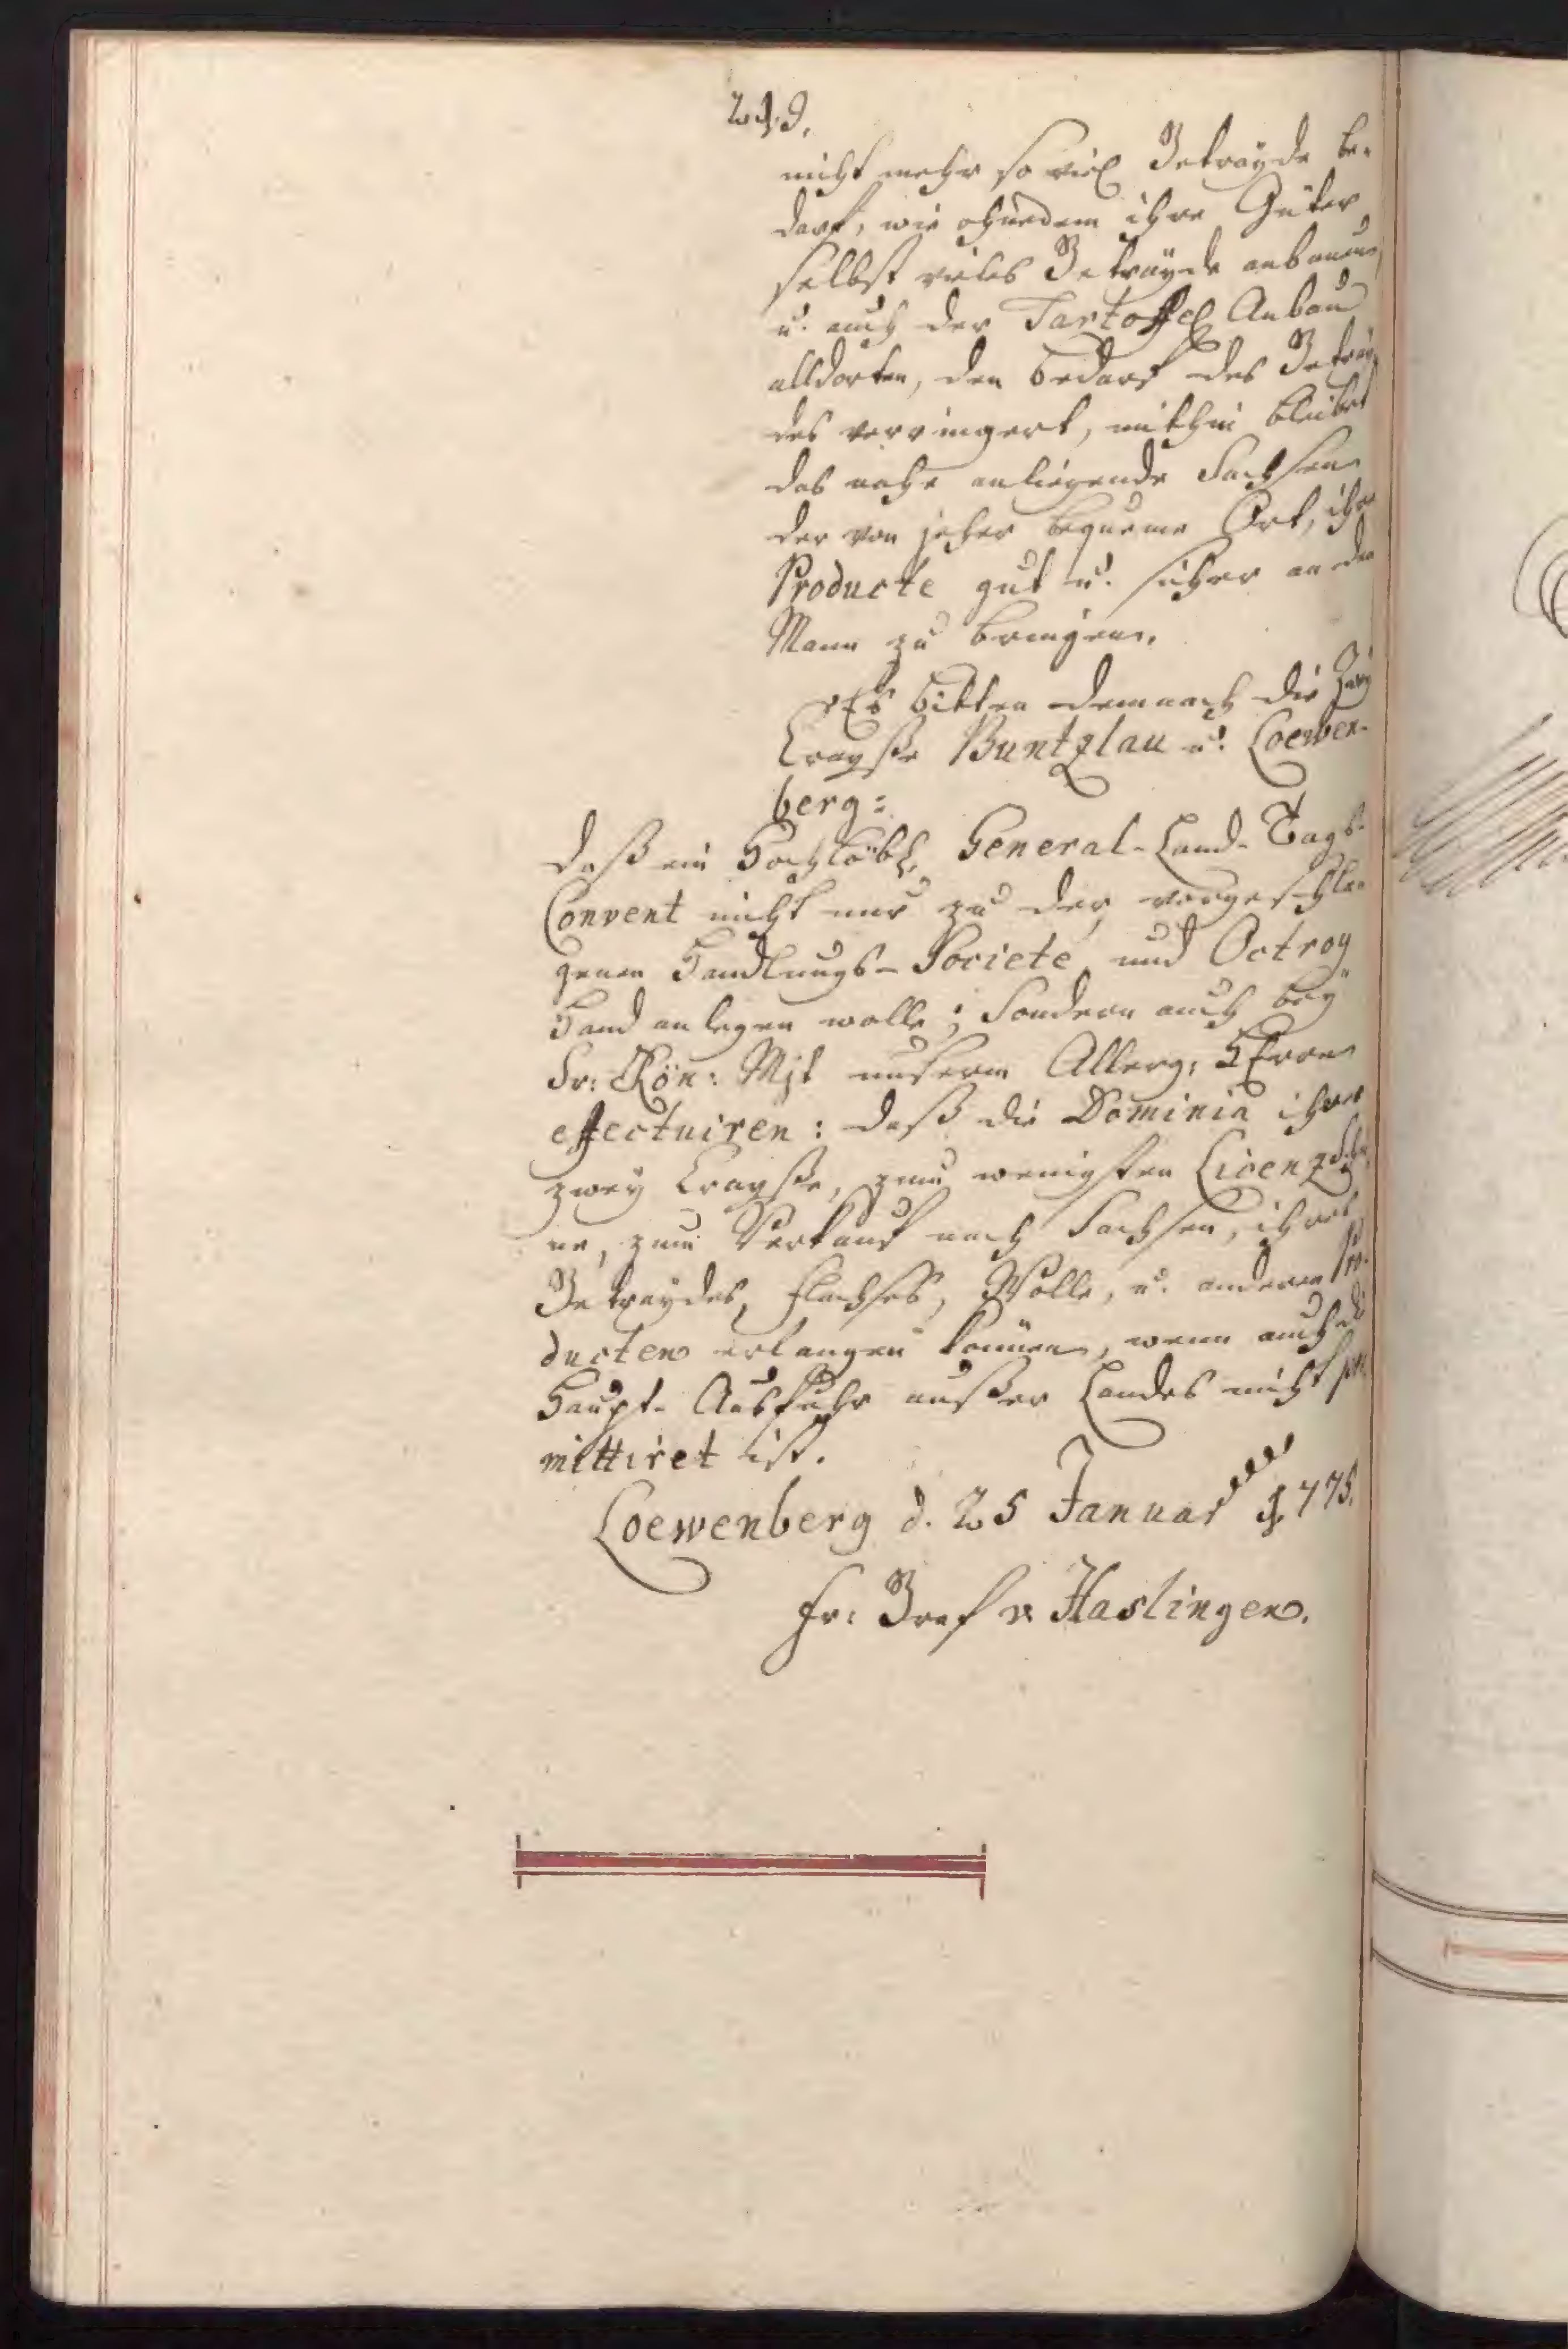 219.
nicht mehr so viel Getrayde be-
darf, wie ohnedem ihre Güter
selbst vieles Getrayde anbauen,
u. auch der Tartoffel Anbau
alldorten, den bedarf des Getray-
des verringert, mithin bleibet
das nahe anliegende Sachsen
der von jeher bequeme Ort, ihre
Producte gut u. sicher an den
Mann zu bringen.
Es bitten demnach die Zwey
Crayße Buntzlau u. Loewen-
berg:
daß ein Hochlöbl. General-Land-Tags-
Convent nicht nur zu der vorgeschla-
genen Handlungs-Societe und Octroy
Hand anlegen wolle; Sondern auch bey
Sr: Kön: Mjt unserm Allerg: HErren
effectuiren: daß die Dominia ihrer
zwey Crayße, zum wenigsten Licenz
ne, zum Verkauf nach Sachsen, ihres
Getraydes, Flachses, Wolle, u. anderen Pro-
ducten erlangen können, wenn auch die
Haupt-Ausfuhr außer Landes nicht per-
mittiret ist.
Loewenberg d. 25 Januar 1775.
Fr: Graf v. Haslingen.